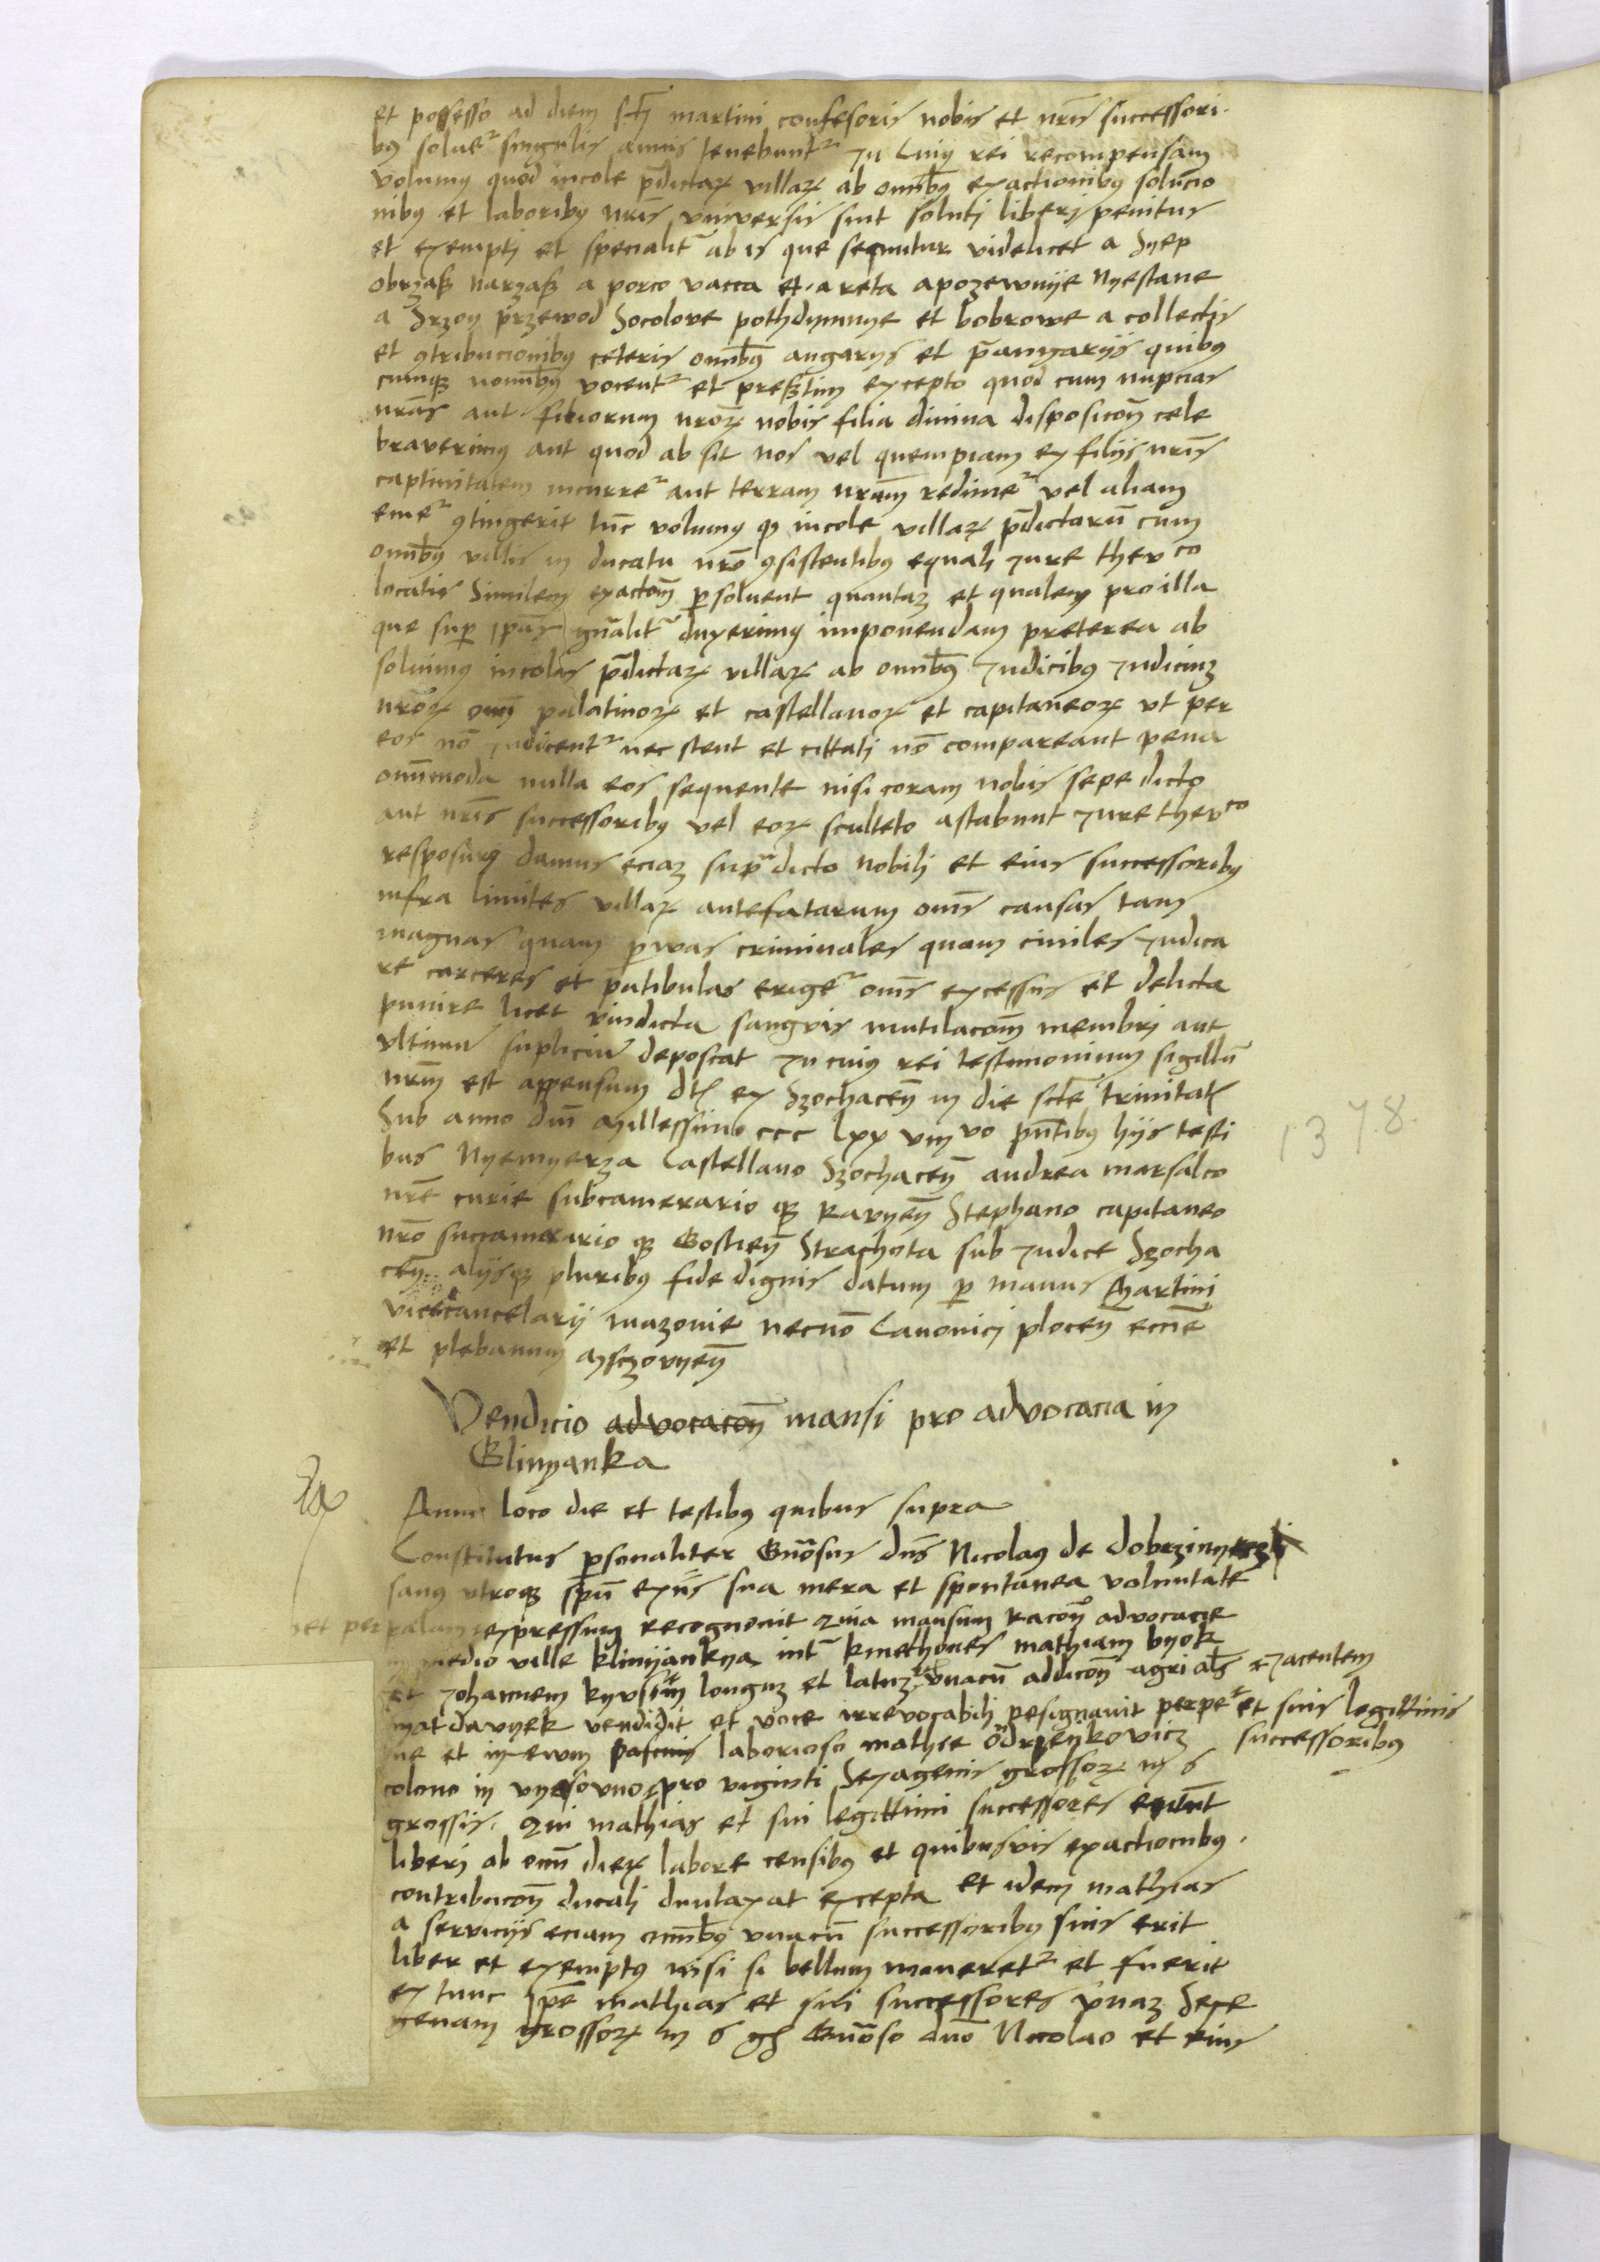 et possesso ad diem sctj martini confesoris nobis et nris successori
bus solue singulis annis tenebunt In Cuius rei recompensam
volumus quod incole pdictarz villarz ab omnibus exactionibus solucio
nibus et laboribus nris vniversis sint solutj liberj penitus
et exemptj et specialit ab is que sequntur videlicet a Syep
obrzasz narzasz a porco vacca et areta a pozewnije nyestane
a Srzon przewod Socolove pothdymnye et bobrowe a collectis
et contribucionibus ceteris omnibus angarys et pangarijs quibus
cumque nominibus vocent et presertim excepto quod cum nupcias
nras aut filiorum nrorz nobis filia divina disposicom cele
braverimus aut quod absit nos vel quempiam ex filijs nris
captivitatem incurre aut terram nram redime vel aliam
eme contingerit tunc volumus quod incole villarz pdictarum cum
omnibus villis in ducatu nro consistentibus equalj Jure theuco
locatis Similem exactom psoluent quantaz et qualem pro illa
que sup ipas gnalit duxerimus imponendam preterea ab
soluimus incolas pdictarz villarz ab omnibus Iudicibus Iudicium
nrorz omn palatinorz et castellanorz et capitaneorz vt per
eos non Iudicent nec stent et cittatj non compareant pena
omnimoda nulla eos sequente nisi coram nobis sepe dicto
aut nris successoribus vel eorz sculteto astabunt Jure theuco
resposuri damus eciaz supradicto nobilj et eius successoribus
infra limites villarz antefatarum omnes causas tam
magnas quam pwas criminales quam civiles Iudica
re carceres et patibulas erige omnes excessus et delicta
punire licet vindicta sangvis mutilacom membrj aut
vltimum supliciu deposcat In cuius rei testimonium sigillu
nrm est appensum dt ex Szochacen in die scte trinitat
Sub anno dni Millessimo ccc lxx viii vo pntibus hijs testi
bus Nyemyerza Castellano Szochacen andrea marsalco
nre curie subcamerario que Ravyen Stephano capitaneo
nro succamerario que Gostien Strachota sub Iudice Szocha
cen alysque pluribus fide dignis datum p manus Martini
vicecancelarij mazovie necno Canonicj plocen eccne
et plebanum Msczovyen
1378
Vendicio advocacom mansi pro advocacia in
Glinyanka
Anno loco die et testibus quibus supra
Constitutus psonaliter Gnosus dns Nicolaus de dobrzinyecz
sanus vtroque spu exns sua mera et spontanea voluntate
et per palam expressum recognovit quia mansum racom advocacie
in medio ville klinijankya int kmethones mathiam byok
et Johannem longuz et latuz vnacu addicom agri als Jacentem
vendidit et voce irrevocabilj resignavit perpe et suis legittimis
ue et in ewm laborioso mathie successoribus
colono in pro viginti Sexagenis grossorz in 6
grossis. Qui mathias et sui legittimi successores erunt
liberj ab omn dierz labore censibus et quibusvis exactionibus
contribucom ducalj duntaxat excepta et idem mathias
a serviciis eciam omnibus vnacu successoribus suis erit
liber et exemptus nisi si bellum moveret et fuerit
ex tunc ipe mathias et sui successores vnaz Sexa
genam grossorz in 6 gs Gnoso dno Nicolao et eius